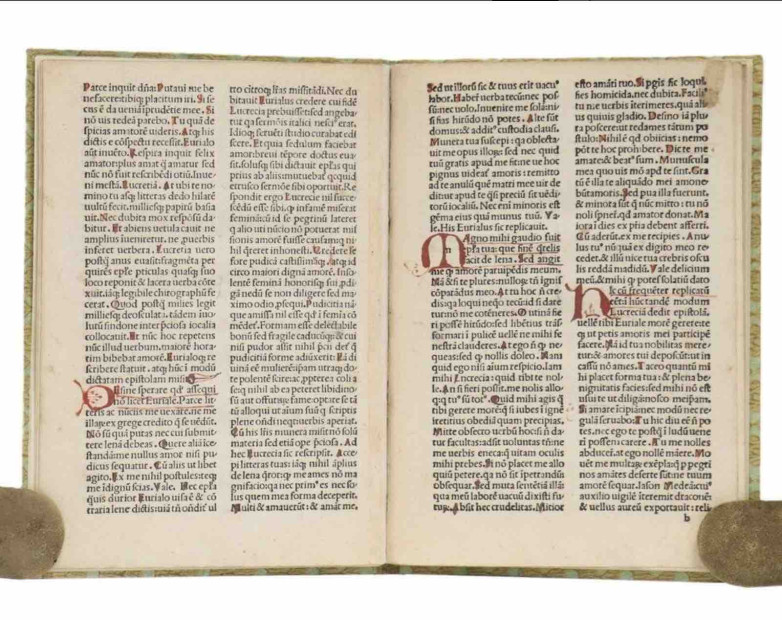 Parce inquit dña: Putaui me be
nefacere tibi q placitum iri. Si se
cus ē da ueniā īprudētie mee. Si
nō uis redeā parebo. Tu quā de
spicias amatorē uideris. Atq his
dictis e cōspectu recessit. Eurialo
aūt inuēto. Respira inquit felix
amator plus amat q amatur sed
nūc nō fuit rescribēdi otiū. Inue
ni mestā. Lucretiā. At ubi te no-
mino tuasq litteras dedo hilarē
uultū fecit. miliesq papirū basia
uit. Nec dubita mox respōsū da-
bitur. Et abiens uetula cauit ne
amplius inueniretur. ne puerbis
inferet uerbera. Lucretia uero
postq anus euasit fragmēta per
quirēs eple pticulas quasq suo
loco reponit & lacera uerba cōte
xuit. iā q legibile chirographū fe
cerat. Quod postq milies legit
milliesq deosculata. tādem inuo
lutū sindone inter pciosa iocalia
collocauit. Et nūc hoc repetens
nūc illud uerbum. maiorē hora-
tim bibebat amorē. Eurialoq re
scribere statuit. atq hūcī modū
dictatam epistolam misit
Desine sperare qd assequi
nō licet Euriale. Parce lit
teris ac nuciis me uexare. ne me
illaꝝ ex grege credito q se uēdūt.
Nō sū quā putas nec cui submit-
tere lenā debeas. Quere aliā ice-
standā me nullus amor nisi pu
dicus sequatur. Cū aliis ut libet
agito. Ex me nihil postules: teq
me īdignū scias. Vale. Nec epla
quis durior Eurialo uisa ē & cō
traria lene dictis: uiā tñ oñdit ul
tro citroq lras missitādi. Nec du
bitauit Eurialus credere cui fidē
Lucretia prebuisset sed angeba-
tur q sermōis italici nescius erat.
Idioq seruēti studio curabat edi
scere. Et quia sedulum faciebat
amor breui tēpore doctus eua-
sit. solusq sibi dictauit eplas qui
prius ab aliis mutuebat qcquid
etrusco sermōe sibi oportuit. Re
spondit ergo Lucrecie nil succe-
sēdū esse sibi. q infamē miserat
feminā cū id se pegrinū lateret
q alio uti nūcio nō potuerat mis
sionis amorē fuisse causam q ni-
hil qreret inhonesti. Credere se
fore pudicā castissimāq: atq id
circo maiori dignā amore. Inso-
lentē feminā honorisq sui pdi-
gā nedū se non diligere sed ma-
ximo odio psequi. Pudicitia nā-
que amissa nil esse qd ī femīa cō
mēdet. Formam esse delectabile
bonū sed fragile caducūq & cui
nisi pudor assit nihil pcii de
pudicitiā forme adiuxerit: Eā di
uinā eē mulierē ipam utraq do
te polente fore. ac ppterea coli a
se q nihil ab ea peteret libidino
sū aut offuturū fame optare se tā
tū alloqui ut aīum suū q scriptis
plene oñdi nequiuerit aperiat.
Cū his lris munera misit nō solū
materia sed etiā ope pciosa. Ad
hec Lucrecia sic rescripsit. Acce-
pi litteras tuas: iāq nihil āplius
de lena qror: q me ames nō ma
gnifacio. qa nec primus es nec so-
lus quem mea forma deceperit.
Multi & amauerūt: & amāt me.
Sed ut illoꝝ sic & tuus erit uacuus
labor. Habere uerba tecū nec pos-
sū nec uolo. Inuenire me solā ni-
si fias hirūdo nō potes. Alte sūt
domus & aditus custodia clausi.
Munera tua suscepi: qa oblecta-
uit me opus illoꝝ sed nec quid
tuū gratis apud me sit ne ue hoc
pignus uideat amoris: remitto
ad te anulū quē matri mee uir de
ditut apud te qsi preciū sit uēdi-
torū iocaliū. Nec eni minoris est
gēma eius quā munus tuū. Va-
le. His Eurialus sic replicauit.
Magno mihi gaudio fuit
epla tua: que finē qrelis
facit de lena. Sed angit
me q amorē paruipēdis meum.
Nā & si te plures: nullus tñ ignis
cōparādus meo. At tu hoc ñ cre-
dis: qa loqui neqo tecū id si dare
tur nō me cōteneres. O utinā fie
ri possē hirūdo sed libētius trās
formari ī pulicē uellē ne mihi fe
nestrā clauderes. At ego ñ q ne-
queas: sed q nollis doleo. Nam
quid ego nisi aīum respicio. Iam
mihi Lucrecia: quid rñisti te nol-
le. An si fieri possit. me nolis allo
qi: q tuus sū totus. Quid mihi agis q
tibi gerere morē qi si iubes ī ignē
iretitius obediā quam precipias.
Mitte obsecro uerbū hoc si ñ da-
tur facultas: adsit uoluntas rñi ne
me uerbis eneca: q uitam oculis
mihi prebes. Si nō placet me allo
qui petere. qa nō sit īpetrandū
obsequar. Sed muta sētētiā illā:
qua meū laborē uacuū dixisti fu-
turū. Absit hec crudelitas. Mitior
esto amāti tuo. Si pgis sic loqui
fies homicida. nec dubita. Facilius
tu me uerbis iterimeres. quā ali-
us quiuis gladio. Desino iā plu-
ra poscere ut redames tātum po
stulo. Nihil ē qd obiicias: nemo
pōt te hoc prohibere. Dicte me
amare & beatus sum. Munuscula
mea quo uis mō apd te sint. Gra
tū ē illa te aliquādo mei amone-
būt amoris. Sed pua illa fuerūt.
& minora sūt q nūc mitto: tu nō
noli spnere qd amator donat. Ma
iora ī dies ex pīa debent afferri.
Cū aderūt. ex me recipies. Anu-
lus tuus nūq ex digito meo re-
cedet. & illū uice tua crebris oscu
lis reddā madidū. Vale delicium
meū. & mihi q potes solatiū dato
Hec cū frequēter replicatū
eēt ī hūc tandē modum
Lucrecia dedit epistolā.
uellē tibi Euriale morē gerere te
q ut petis amoris mei participē
facere. Nā id tua nobilitas mere-
tur: & amores tui deposcūt ut in
cassū nō ames. Taceo quantū mi
hi placet forma tua: & plena be-
nignitatis facies: sed mihi nō est
usui te ut diligā: nosco meipam.
Si amare īcipiā nec modū nec re-
gulā seruabo. Tu hic diu eē ñ po
tes. nec ego te postq ī ludū uene-
ri possem carere. Tu me nolles
abducere. at ego nollē manere. Mo
uēt me multaꝝ exēpla: q p pegri
nos amātes deserte sūt ne tuum
amorē sequar. Iason Medeā cuius
auxilio uigilē iteremit draconē
& uellus aureū exportauit: reli-
b